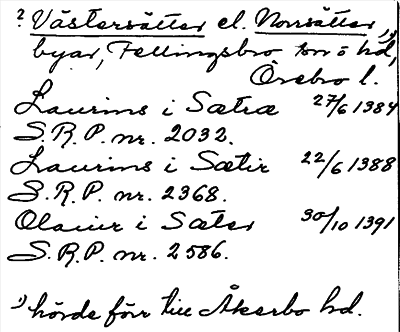 ? Västersätter el. Norrsätter, ¹)
byar, Fellingsbro sn o hd,
Örebro l.
Laurins i Sætræ 27/6 1384
S.R.P. nr. 2032.
Laurins i Sætir 22/6 1388
S.R.P. nr. 2368.
Olauir i Sæter 30/10 1391
S.R.P. nr. 2586.
¹) hörde förr till Åkerbo hd.